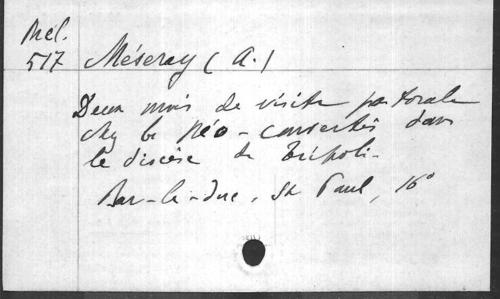 Mél.
517
Méseray (A.)
Deux mois de visite pastorale
chez les Néo-convertis dans
le diocèse de Tripoli.
Bar-le-duc, St Paul, 16°